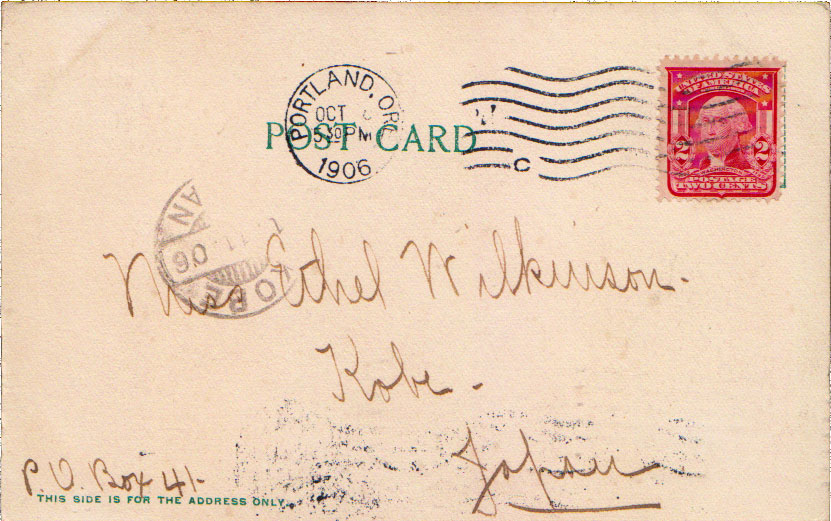 PORTLAND, ORE
OCT
530PM
1906
POST CARD
C
UNITED STATES
OF AMERICA
2 2
WASHINGTON
POSTAGE
TWO CENTS
KOBE
11 06
AN
Miss Ethel Wilkinson.
Kobe.
Japan
P. O. Box 41-
THIS SIDE IS FOR THE ADDRESS ONLY.